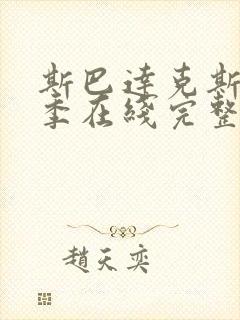 斯巴達克斯
季在綫完整
趙天奕